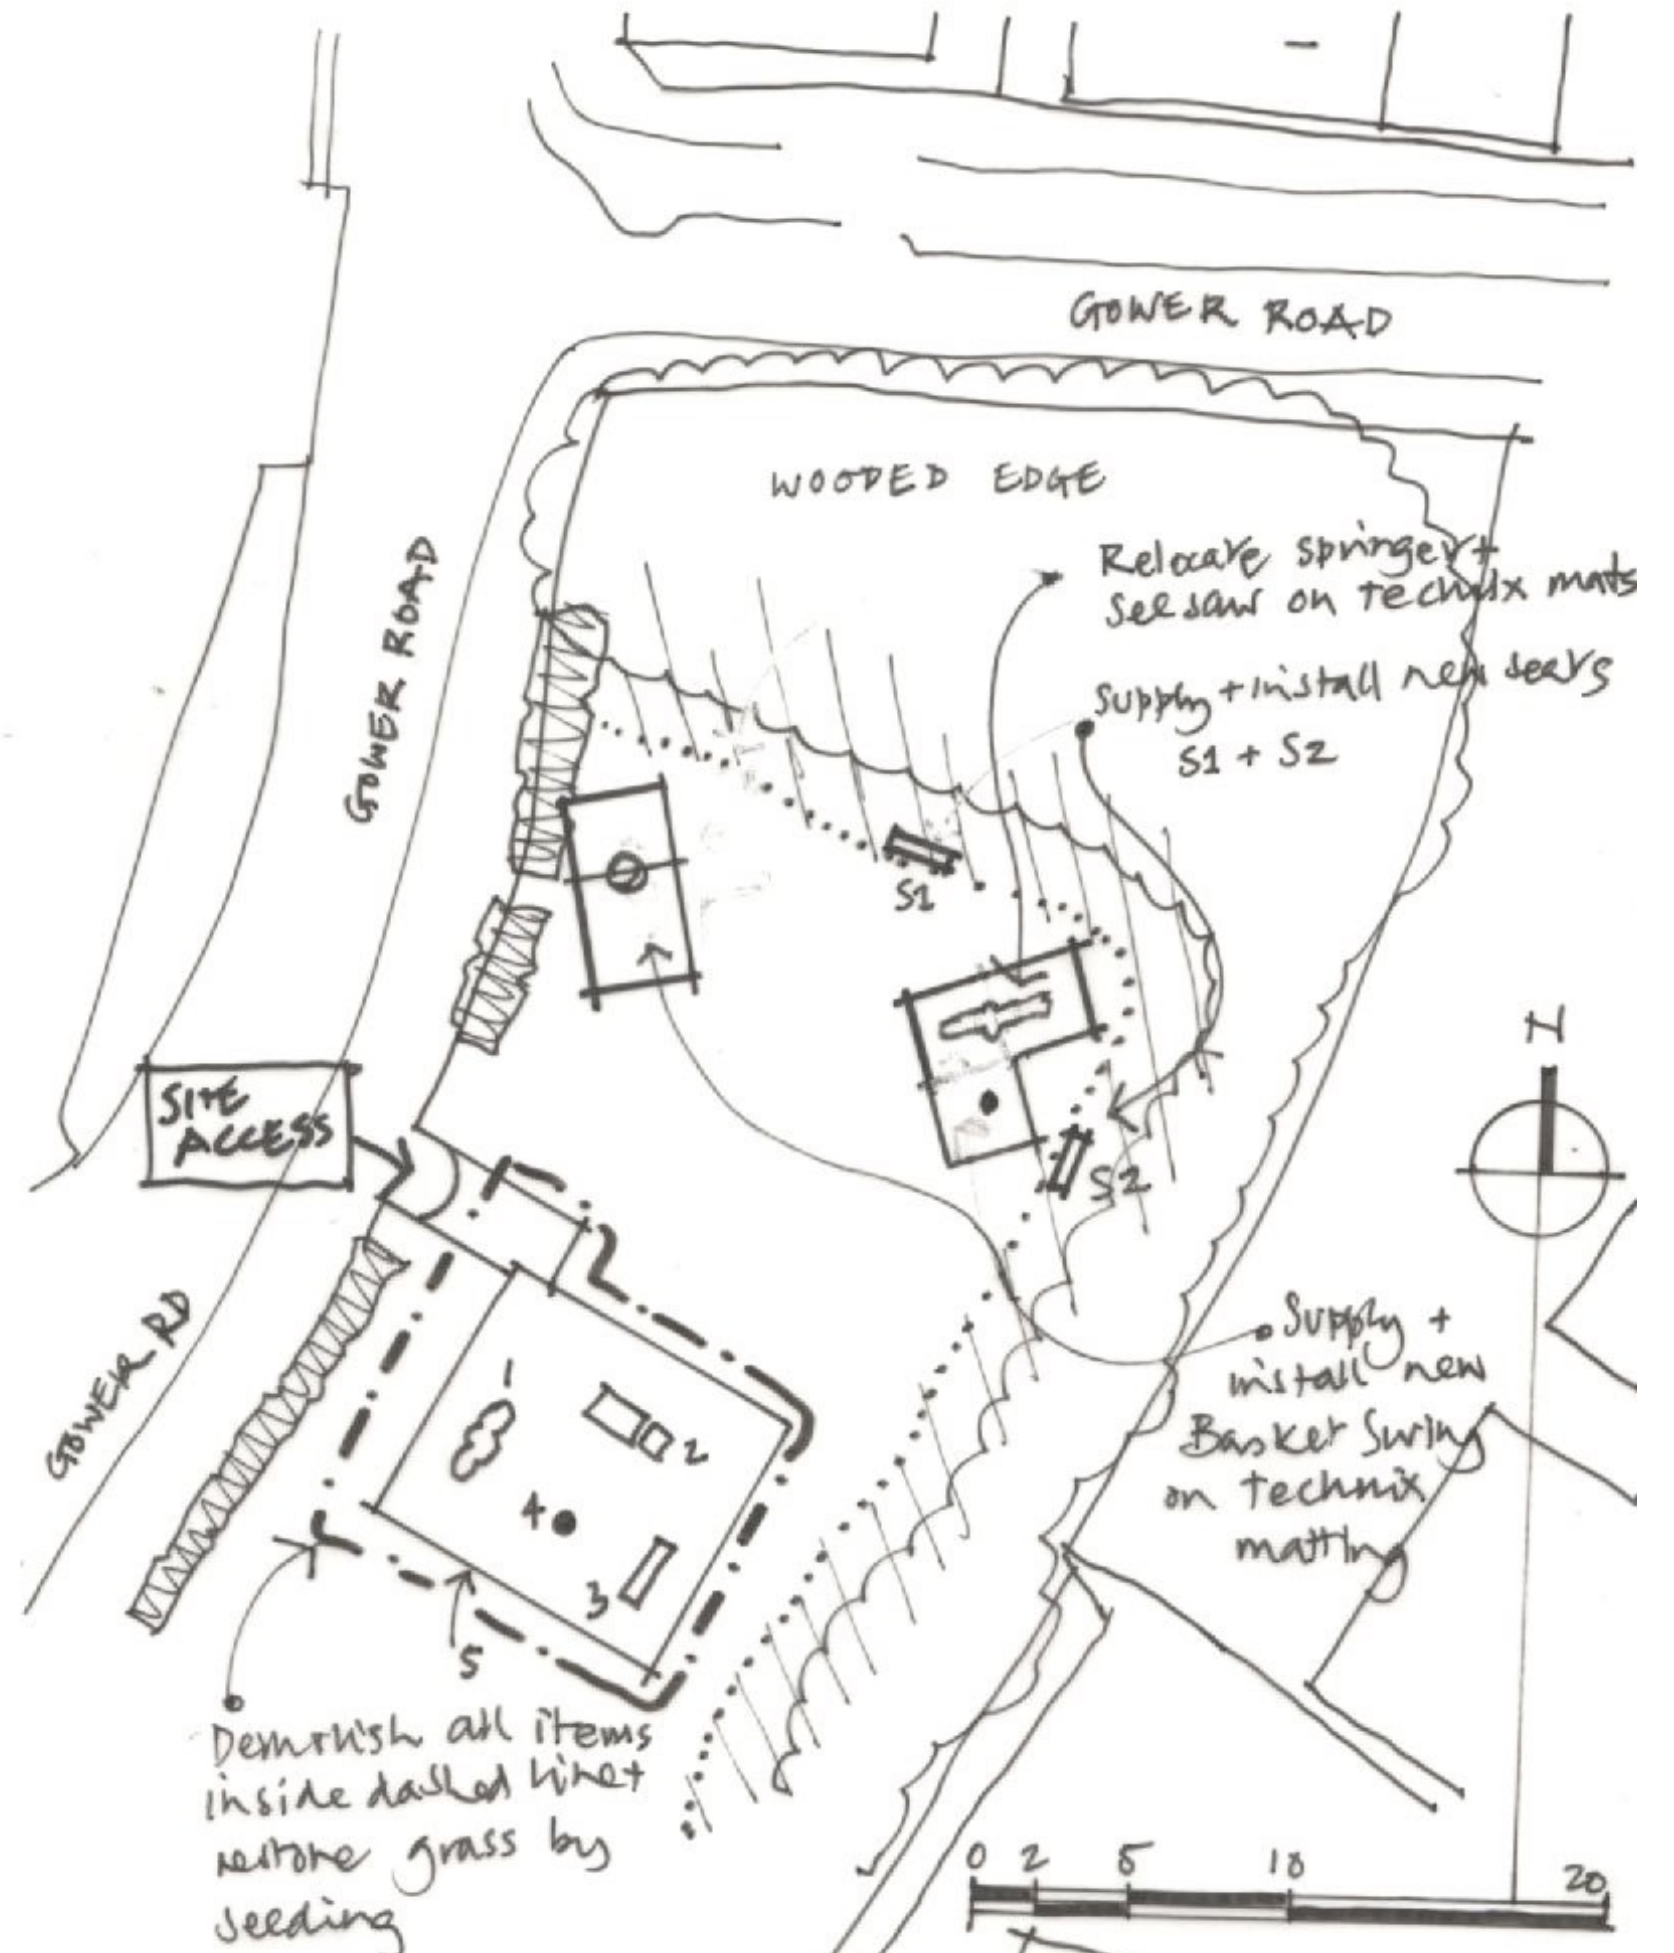 GOWER ROAD
WOODED EDGE
Relocate springer +
seesaw on technix mats
Supply + install new seats
S1 + S2
GOWER ROAD
S1
S2
N
SITE
ACCESS
GOWER RD
1
2
4
3
5
Supply +
install new
Basket Swing
on technix
matting
Demolish all items
inside dashed line +
restore grass by
seeding
0 2 5 10 20